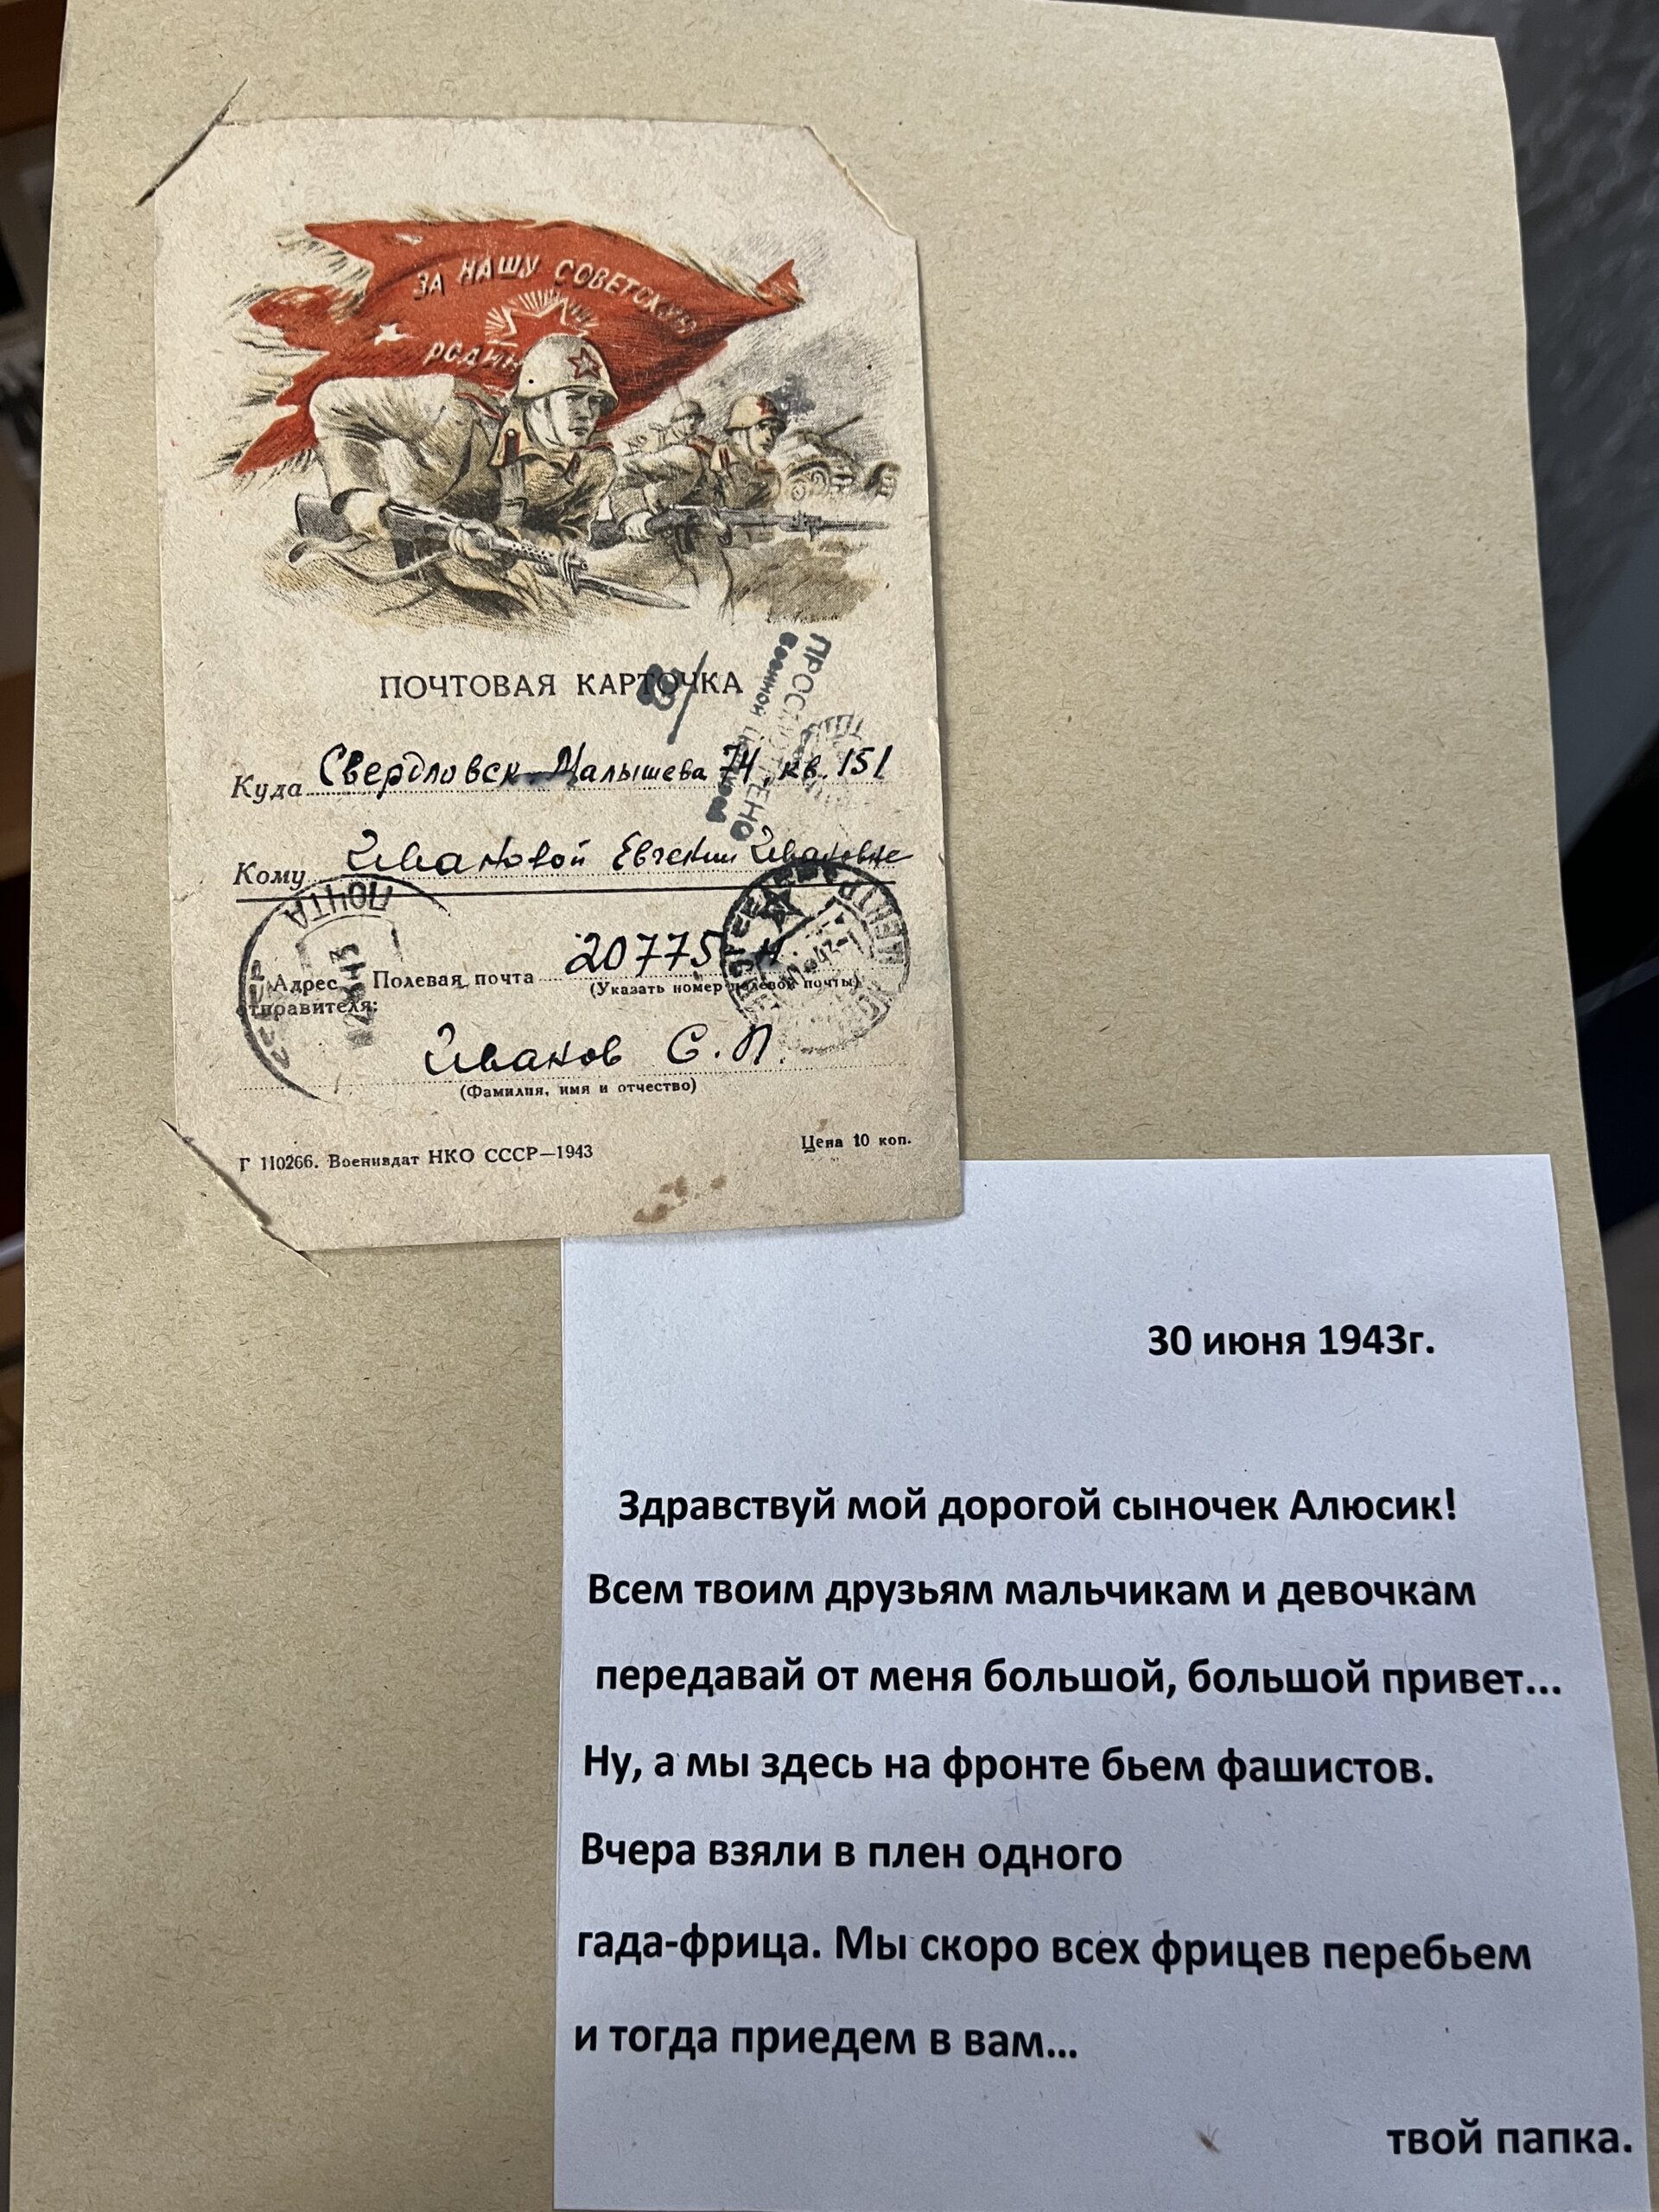 ЗА НАШУ СОВЕТСКУЮ
РОДИН
ПОЧТОВАЯ КАРТОЧКА
ПРОСМОТРЕНО
Военной Цензурой
Куда Свердловск Малышева 74, кв. 151
Кому Ивановой Евгении Ивановне
ПОЧТА
Адрес отправителя:
Полевая почта 20775-И
(Указать номер полевой почты)
Иванов С. П.
(Фамилия, имя и отчество)
Г 110266. Воениздат НКО СССР—1943
Цена 10 коп.
30 июня 1943г.
Здравствуй мой дорогой сыночек Алюсик!
Всем твоим друзьям мальчикам и девочкам
передавай от меня большой, большой привет...
Ну, а мы здесь на фронте бьем фашистов.
Вчера взяли в плен одного
гада-фрица. Мы скоро всех фрицев перебьем
и тогда приедем в вам...
твой папка.